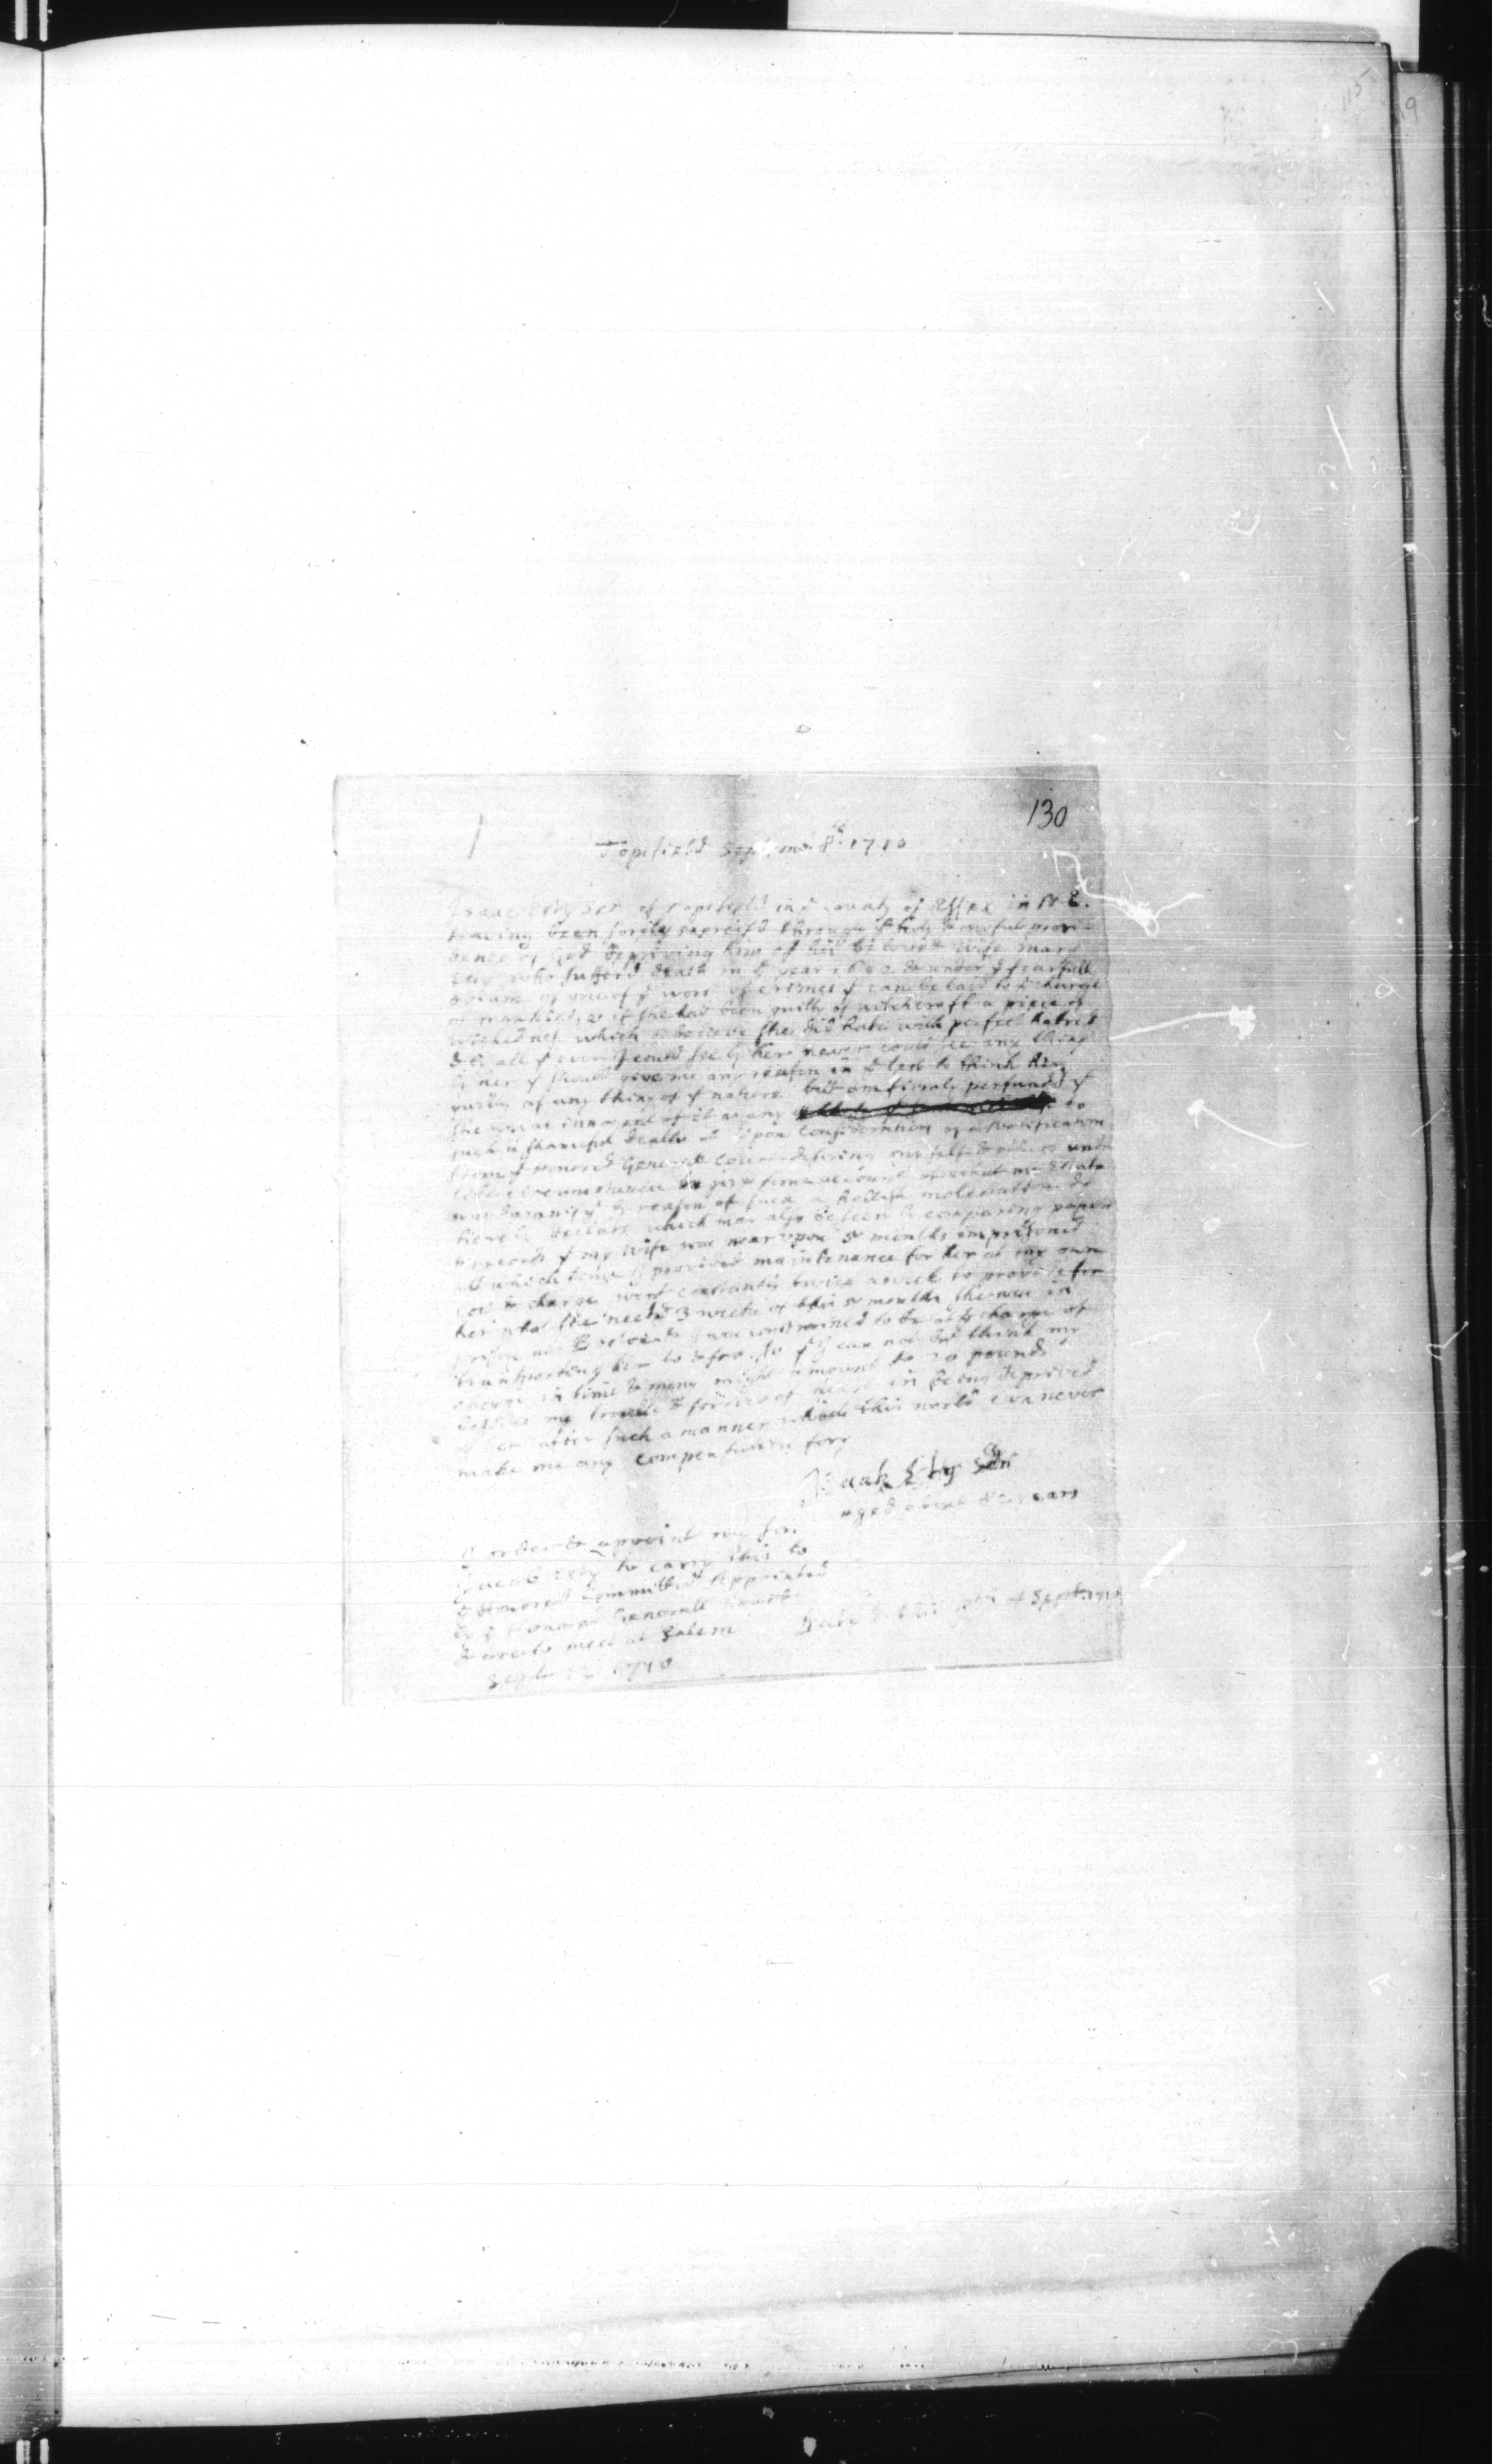 115
19
130
Topsfield Septemb. 8th. 1710
Isaac Esty Senr of Topsfield in ye county of Essex in N E.
having been sorely exercis'd through ye holy & awful provi
dence of God depriving him of his beloved wife Mary
Esty who suffered death in ye year 1692 & under ye fearfull
odium of one of ye worst of crimes yt can be laid to ye charge
of mankind, as if she had been guilty of witchcraft a piece of
wickedness which I beleeve she did hate with perfect hatred
& by all yt ever I could see by her never could see any thing
by her yt should give me any reason in ye lest to think her
guilty of any thing of yt nature but am firmly persuaded yt
she was as innocent of it as any to
such a shameful death Upon consideration of a Notification
from ye Honored Generall Court desiring my self & others under
like circumstances to give some account of what my Estate
was damnify'd by reason of such a hellish molestation do
hereby declare which may also be seen by comparing papers
& records yt my wife was near upon 5 months imprisoned
all which time I provided maintenance for her at my own
cost & charge went constantly twice a week to provide for
her what she needed 3 weeks of this 5 months she was in
prison at Boston & I was constrained to be at ye charge of
transporting her to & fro. So yt I can not but think my
charge in time & mony might amount to 20 pounds
besides my trouble & sorrow of heart in being deprived
of her after such a manner which this world can never
make me any compensation for
Isaak Esty Sen
aged about 82 years
I order & appoint my son
Jacob Esty to carry this to
ye Honored Committee Appointed
by ye Honored Generall Court
& are to meet at Salem
Septr 12 1710
Dated this 8th of Septr. 1710